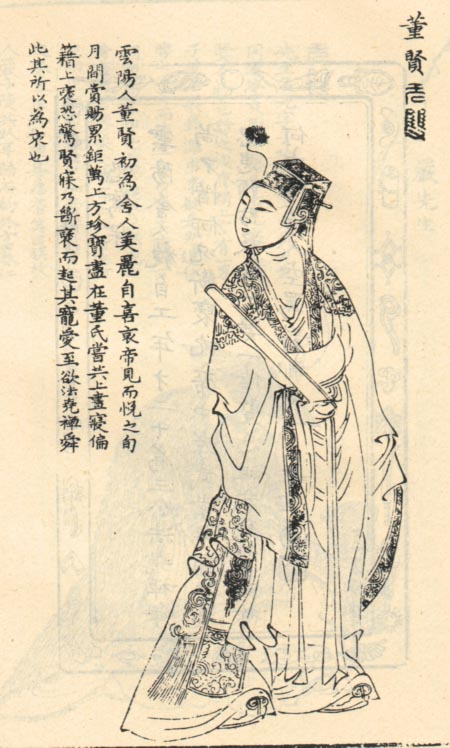 董賢无雙
雲陽人董賢初為舍人美麗自喜哀帝見而悅之旬
月間賞賜累鉅萬上方珍寶盡在董氏嘗共上晝寢偏
籍上褎恐驚賢寐乃斷褎而起其寵愛至欲法堯禪舜
此其所以為哀也